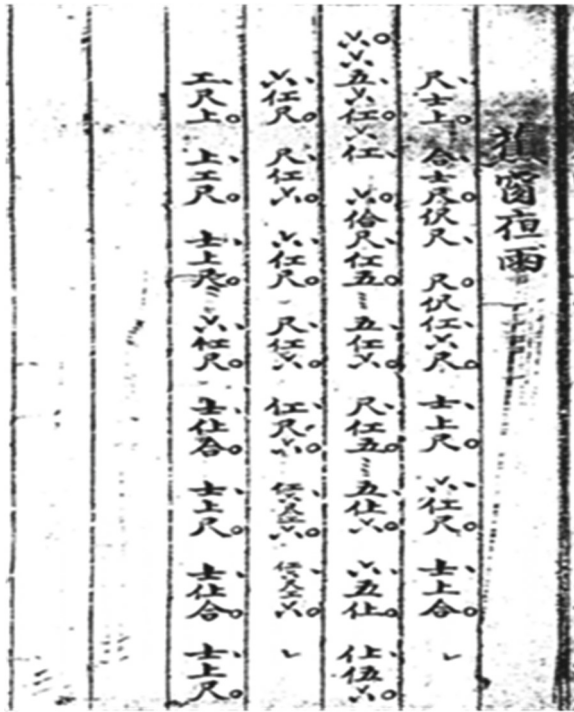 蕉窗夜雨
尺士上 合士尺伬尺 尺伬仜六尺 士上尺 六仜尺 士上合
六六五六仜六仜 六佮尺仜五 五仜六 尺仜五 五仩六 六五仩 仩伍六
六仜尺 尺仜六 六仜尺 尺仜六 仜尺六
工尺上 上工尺 士上尺 六仜尺 士仩合 士上尺 士仩合 士上尺